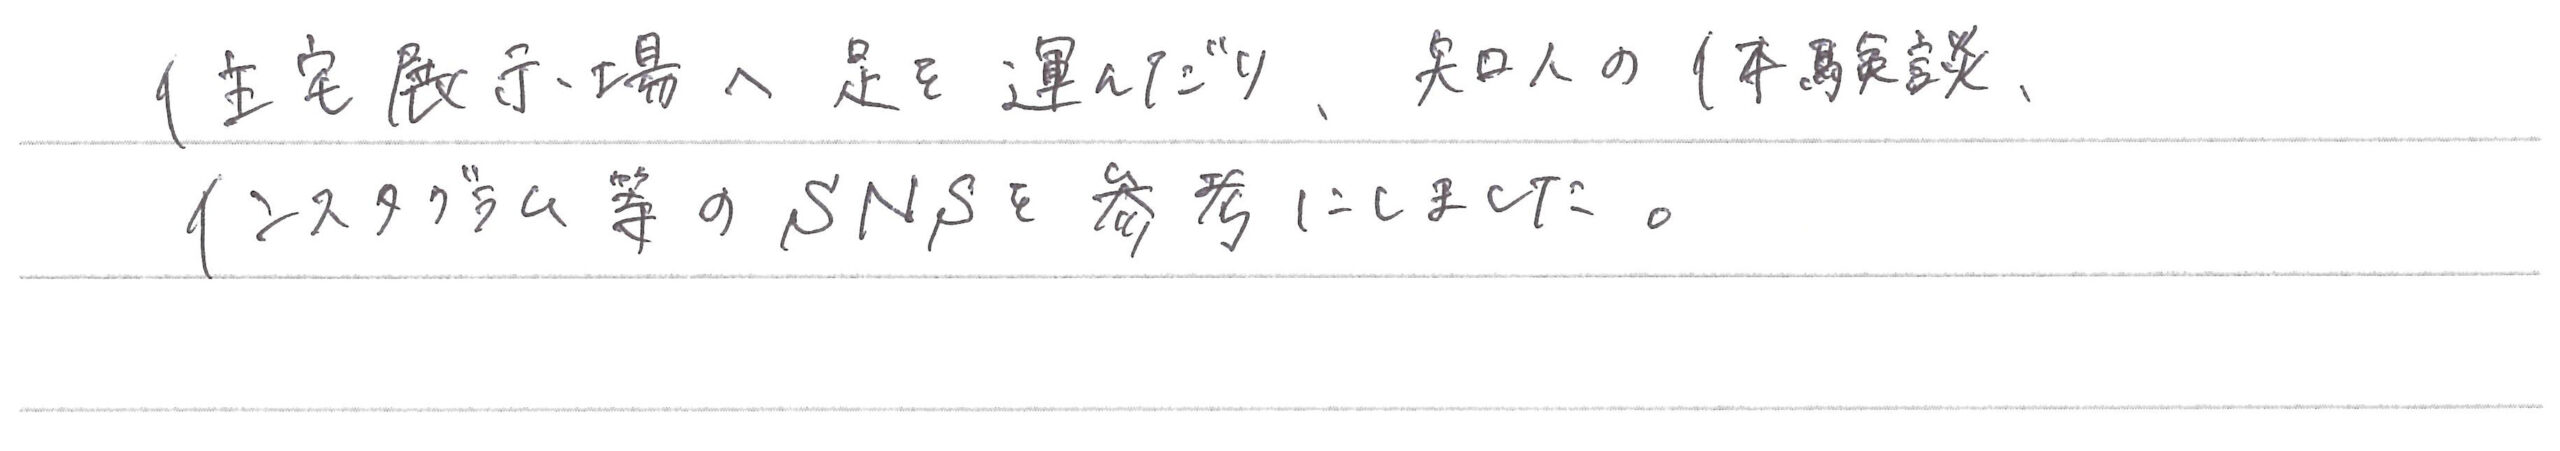 住宅展示場へ足を運んだり、知人の体験談、
インスタグラム等のSNSを参考にしました。